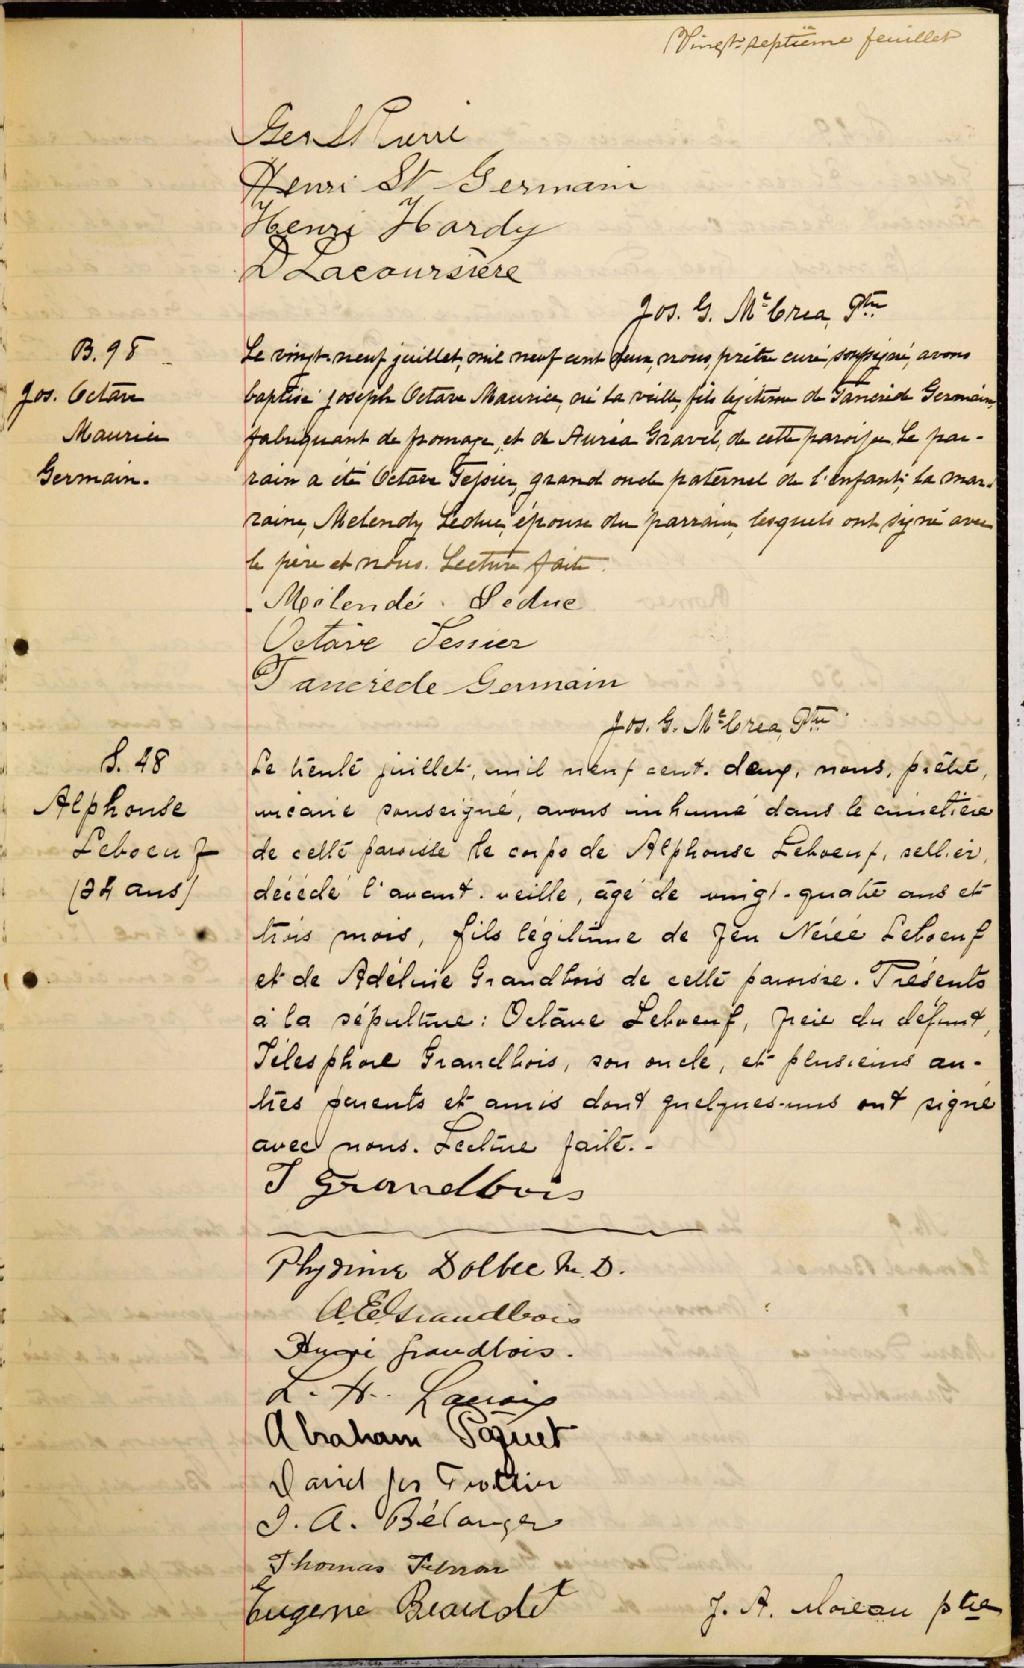 Vingt-septième feuillet
Henri St Germain
Henri Hardy
D Lacoursière
Jos. G. McCrea, Ptre
B. 98
Jos. Octave
Maurice
Germain.
Le vingt-neuf juillet, mil neuf cent deux, nous, prêtre curé soussigné, avons
baptisé Joseph Octave Maurice, né la veille, fils légitime de Tancrède Germain,
fabriquant de fromage, et de Auréa Gravel, de cette paroisse. Le par-
rain a été Octave Tessier, grand oncle paternel de l'enfant; la mar-
raine, Melendy Leduc, épouse du parrain, lesquels ont signé avec
le père et nous. Lecture faite.
Mélendé Leduc
Octave Tessier
Tancrède Germain
Jos. G. McCrea, Ptre
S. 48
Alphonse
Leboeuf
(24 ans)
Le trente juillet, mil neuf cent deux, nous, prêtre,
vicaire sousseigné, avons inhumé dans le cimetière
de cette paroisse le corps de Alphonse Leboeuf, sellier,
décédé l'avant-veille, âgé de vingt-quatre ans et
trois mois, fils légitime de feu Nérée Leboeuf
et de Adéline Grandbois de cette paroisse. Présents
à la sépulture: Octave Leboeuf, frère du défunt,
Télesphore Grandbois, son oncle, et plusieurs au-
tres parents et amis dont quelques-uns ont signé
avec nous. Lecture faite.-
T Grandbois
Phydime Dolbec M.D.
A.E. Grandbois
Henri Grandbois.
L. H.
Abraham Paquet
David Jos Trottier
J. A. Bélanger
Thomas
Eugene Beaudet
J. A. Moreau ptre